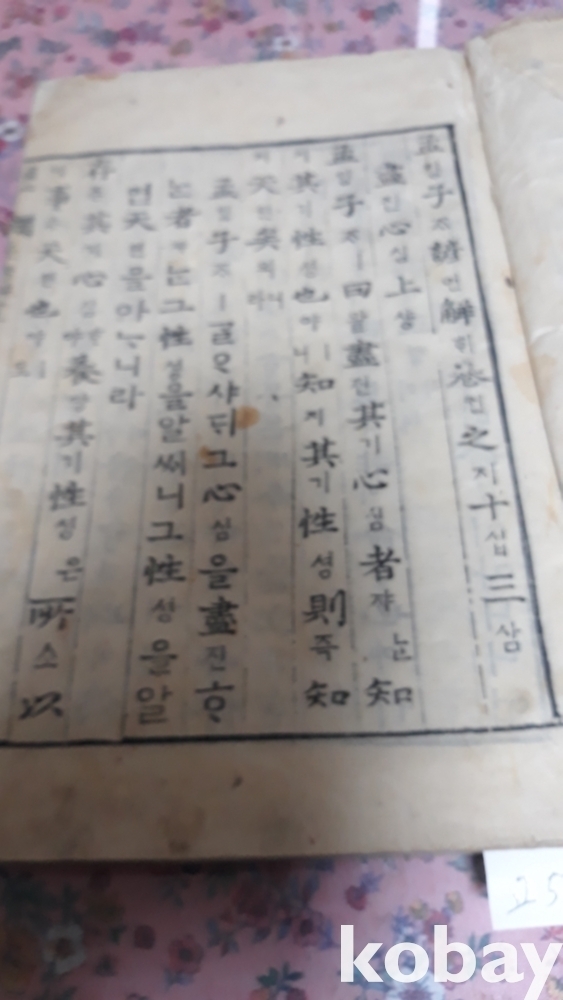 孟ᄆᆡᆼ子ᄌᆞ諺언解ᄒᆡ卷권之지十십三삼
盡진心심上샹
孟ᄆᆡᆼ子ᄌᆞㅣ曰왈盡진其기心심者쟈ᄂᆞᆫ知
지其기性셩也야ㅣ니知지其기性셩則즉知
지天텬矣의니라
孟ᄆᆡᆼ子ᄌᆞㅣᄀᆞᆯᄋᆞ샤ᄃᆡ그心심을盡진ᄒᆞ
ᄂᆞᆫ者쟈ᄂᆞᆫ그性셩을알ᄡᅥ니그性셩을알
면天텬을아ᄂᆞ니라
存존其기心심ᄒᆞ야養양其기性셩은所소以
이事ᄉᆞ天텬也야ㅣ오
kobay